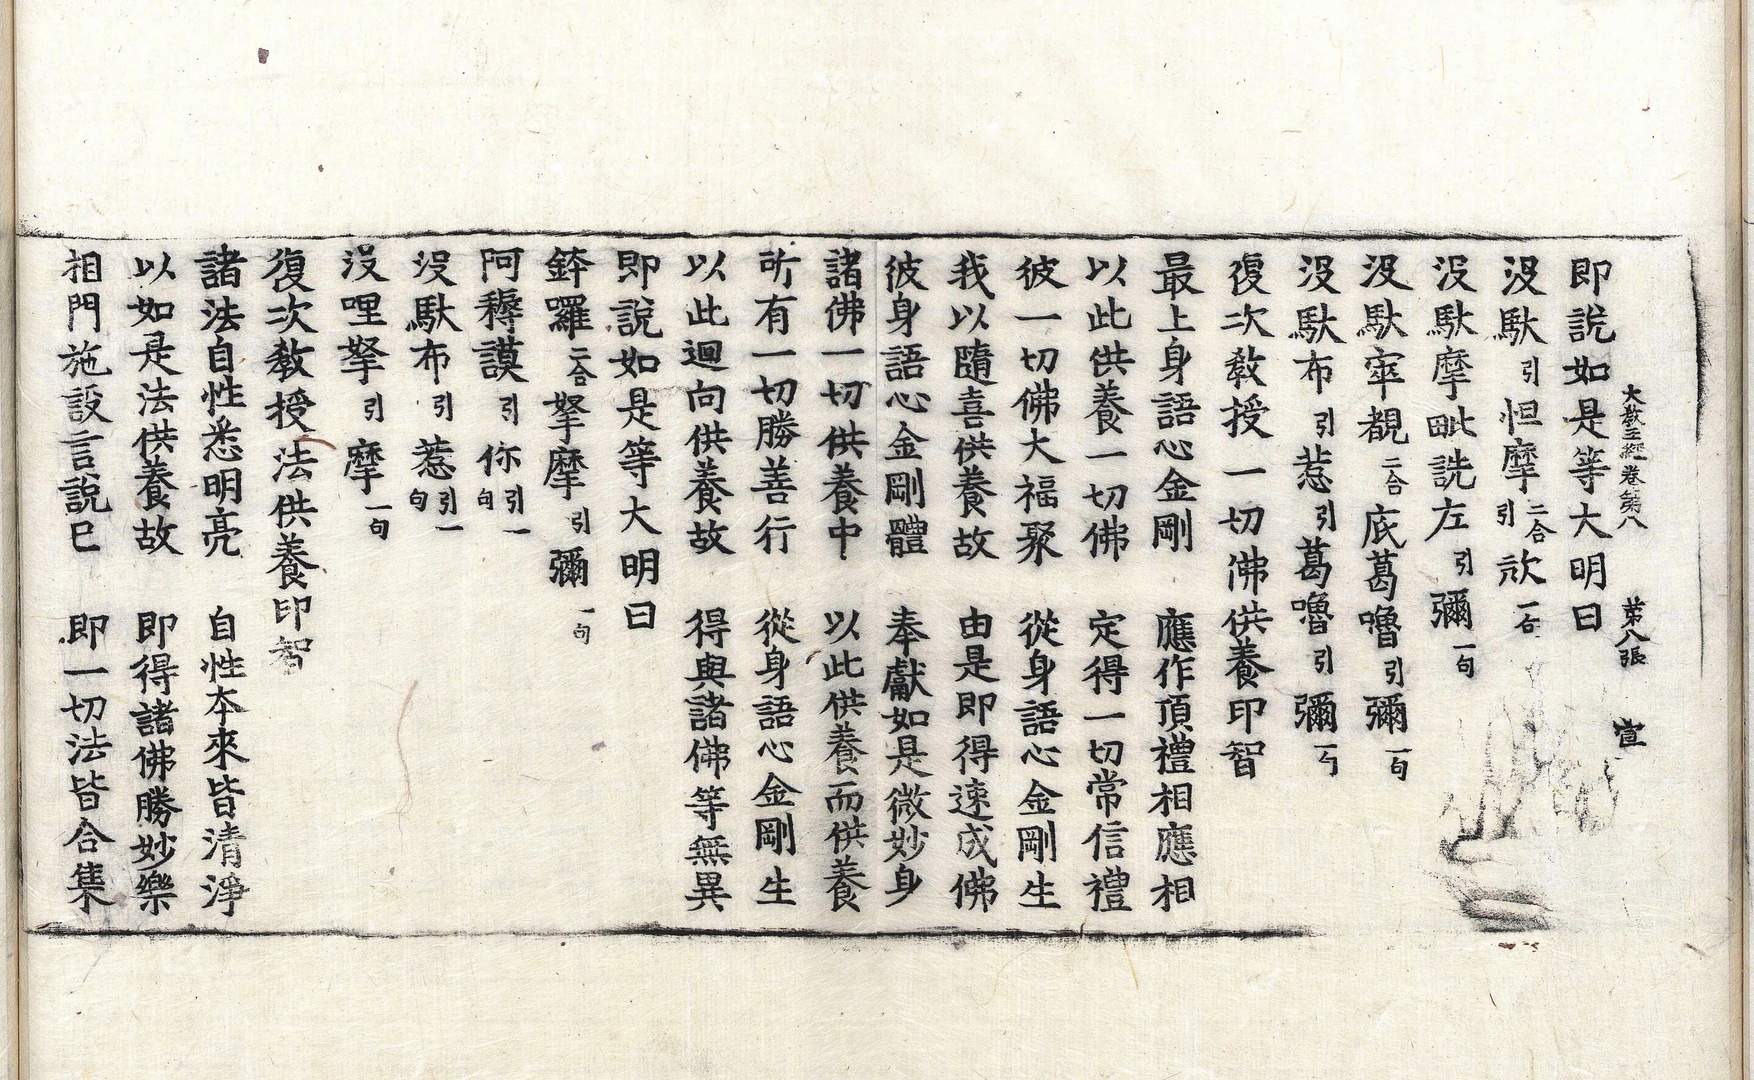 大教王經卷第八 第八張 宣
即說如是等大明曰
沒馱引怛摩二合引欨一句
沒馱摩毗詵左引彌一句
沒馱窣覩二合底葛嚕引彌一句
沒馱布引惹引葛嚕引彌一句
復次教授一切佛供養印智
最上身語心金剛 應作頂禮相應相
以此供養一切佛 定得一切常信禮
彼一切佛大福聚 從身語心金剛生
我以隨喜供養故 由是即得速成佛
彼身語心金剛體 奉獻如是微妙身
諸佛一切供養中 以此供養而供養
所有一切勝善行 從身語心金剛生
以此迴向供養故 得與諸佛等無異
即說如是等大明曰
鉢囉二合拏摩引彌一句
阿耨謨引你引一句
沒馱布引惹引一句
沒哩拏引摩一句
復次教授法供養印智
諸法自性悉明亮 自性本來皆清淨
以如是法供養故 即得諸佛勝妙樂
相門施設言說已 即一切法皆合集